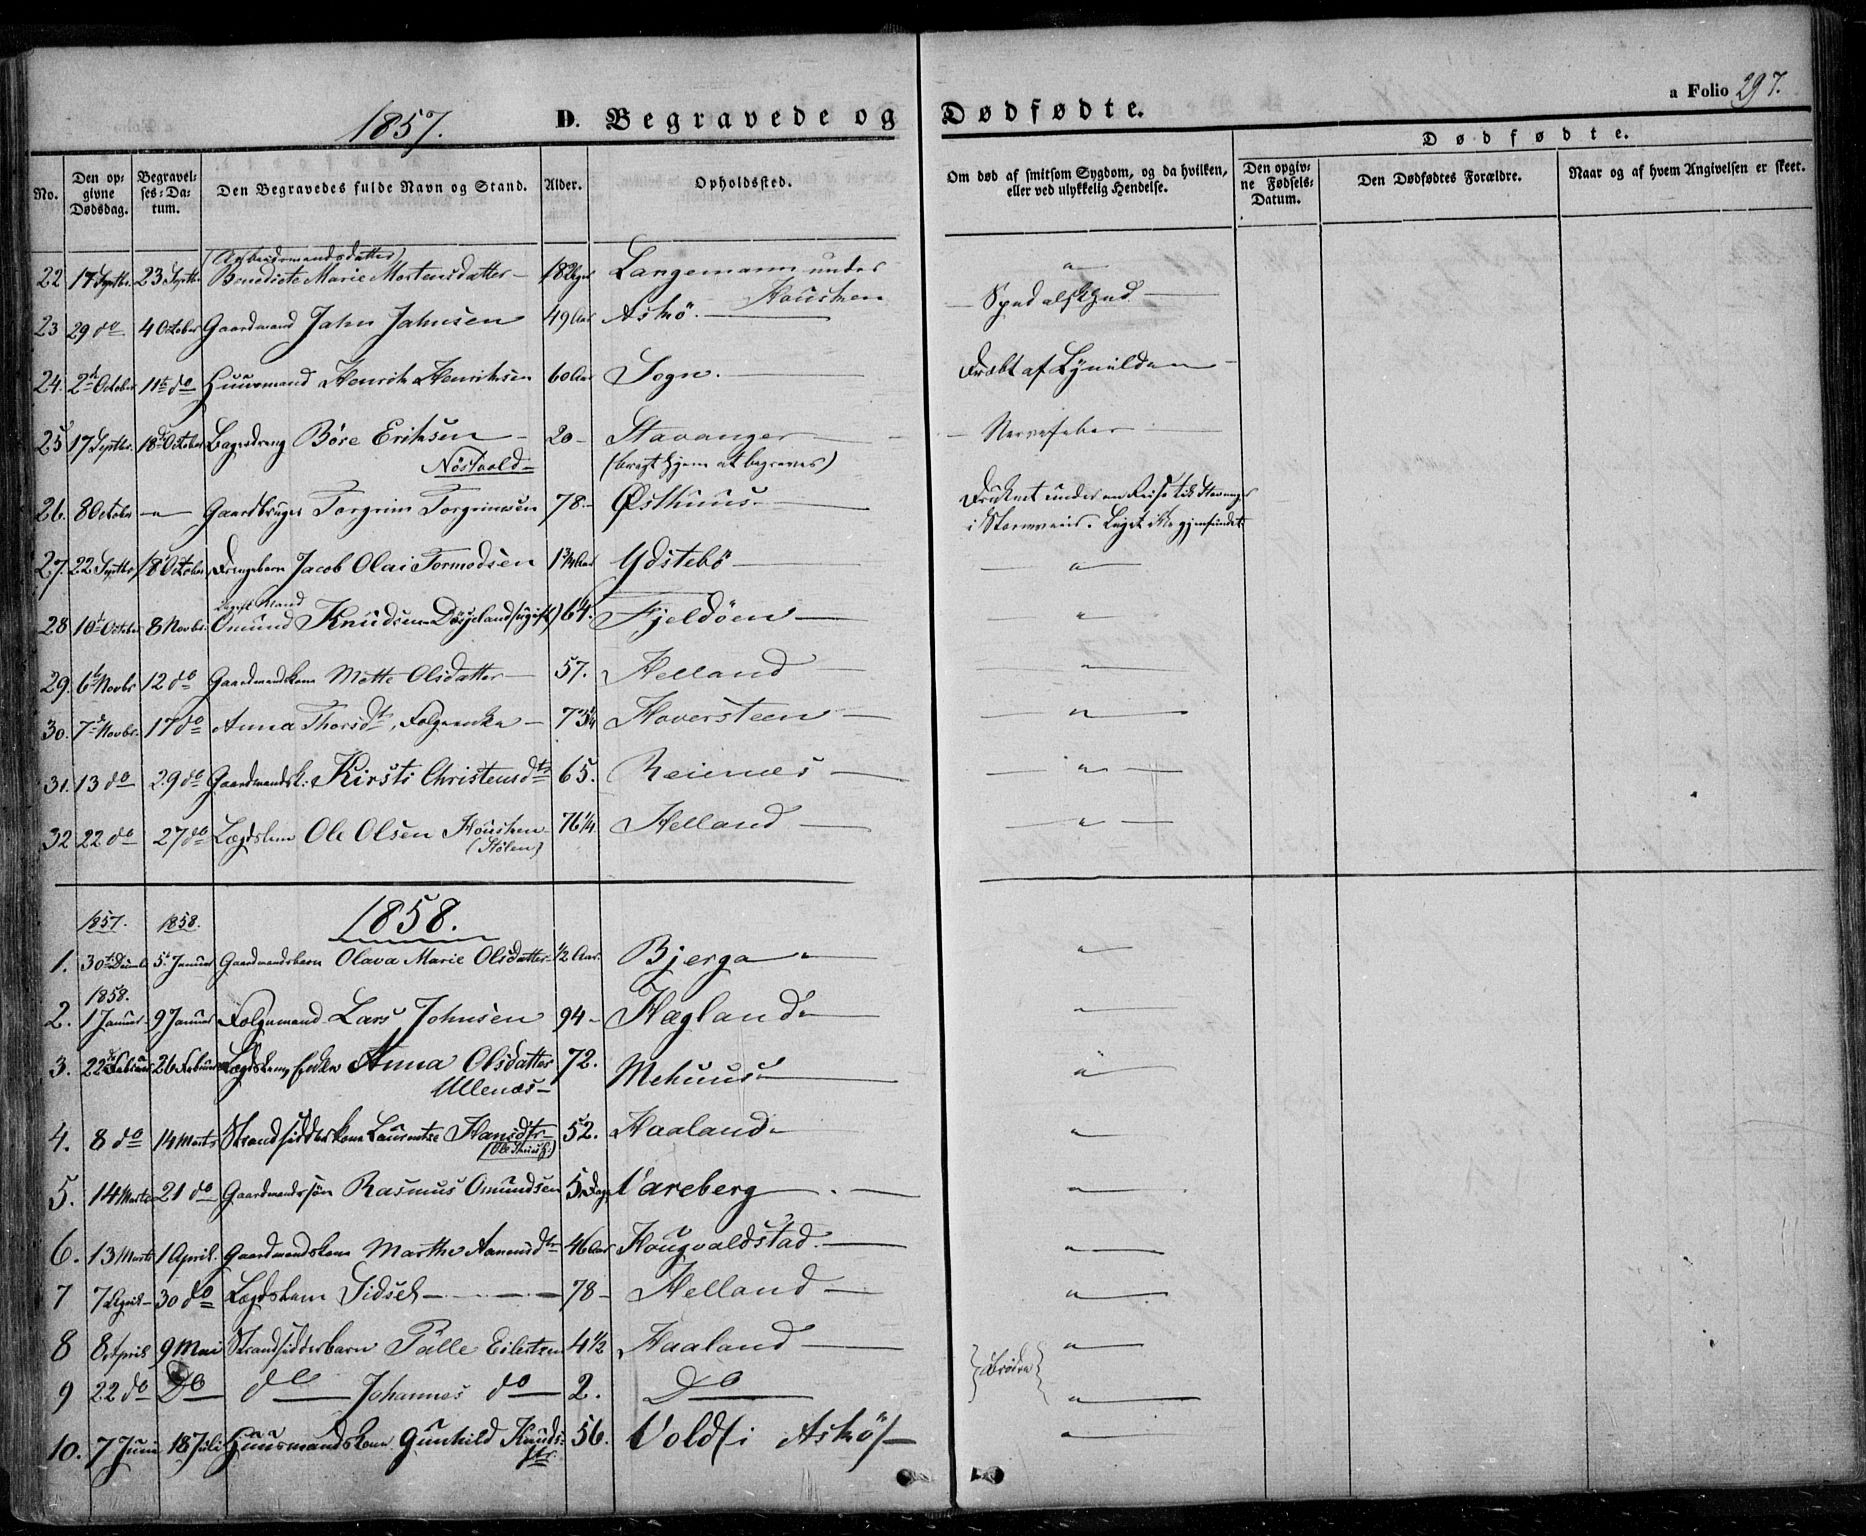 a Folio 297.
1857. D. Begravede og Dødfødte.
Dødfødte.
No. | Den opgivne Dødsdag. | Begravelses-Datum. | Den Begravedes fulde Navn og Stand. | Alder. | Opholdssted. | Om død af smitsom Sygdom, og da hvilken, eller ved ulykkelig Hendelse. | Den opgivne Fødsels-Datum. | Den Dødfødtes Forældre. | Naar og af hvem Angivelsen er skeet.
(Arbeidsmandsdatter)
22 17 Septbr. 23 Septbr Benedicte Marie Mortensdatter 18 Langemann under Houschen "
23 29 do 4 October Gaardmand John Johnsen 49 Aar Askö. Spedalskhed
24. 2d October 11te do Huusmand Henrik Henriksen 60 Aar Sogn. Dræbt af Lynilden
25 17 Septbr. 18d October Bagerdreng Böre Eriksen 20 Stavanger Nervefeber
Nöstvold (bragt hjem at begraves)
26. 8 October " Gaardbruger Torgrim Torgrimsen 78. Østhuus. Druknet under en Reise til Stavanger
i Stormveir. Liget ikke gjenfundet
27. 22 Septbr 18 October Drengebarn Jacob Olai Tormodsen 1 3/4 Aar Ydstebö "
28 10 October 8 Novbr. Omund Knudsen 64. Fjeldöen "
29. 6t Novbr 12 do Gaardmandskone Mette Olsdatter 57. Helland "
30. 7d Novbr. 17 do Anna Thorsdtr, Folgeenke 73 1/4 Haversteen "
31. 13 do 29 do Gaardmandsk: Kirsti Christensdtr 65. Reienes "
32 22 do 27 do Lægdslem Ole Olsen Houschen 76 1/4 Helland "
(Hölen)
1857. 1858. 1858.
1. 30te Decemb 5 Januar Gaardmandsbarn Olava Marie Olsdatter 1/2 Aar. Bjerga "
1858.
2. 1 Januar 9 Januar Folgemand Lars Johnsen 94 Hagland "
3. 22 Februar 26 Februar Lægdslem, Enke Anna Olsdatter 72. Mehuus "
Ullenæs
4. 8 do 14 Marts Strandsidderkone Laurentze Hansdtr 52. Haaland "
5. 14 Marts 21 do Gaardmandssön Rasmus Omundsen 5 Dage Vareberg "
6. 13 Marts 1 April. Gaardmandskone Marthe Aanensdtr 46 Aar Hougvaldstad. "
7 7 April 30 do Lægdslem Sidsel 78 Helland "
8 8 April 9 Mai Strandsidderbarn Palle Eilertsen 4 1/2 Haaland "
{Brödre}
9 22 do Do do Johannes do 2. Do "
10. 7 Juni 18 Juli Huusmandskone Gunhild Knudsdtr 56. Vold (i Askö) "